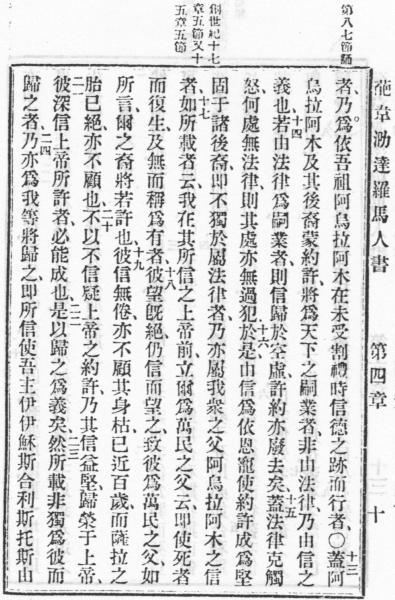 葩韋泐達羅馬人書 第四章 十
第八七節誦
創世紀十七
章五節又十
五章五節
者乃爲依吾祖阿烏拉阿木在未受割禮時信德之跡而行者、〇十三蓋阿
烏拉阿木及其後裔蒙約許將爲天下之嗣業者非由法律乃由信之
義也十四若由法律爲嗣業者則信歸於空虛許約亦廢去矣十五蓋法律克觸
怒何處無法律則其處亦無過犯十六於是由信爲依恩寵使約許成爲堅
固于諸後裔即不獨於屬法律者乃亦屬我衆之父阿烏拉阿木之信
者十七如所載者云我在其所信之上帝前立爾爲萬民之父云即使死者
而復生及無而稱爲有者十八彼望旣絕仍信而望之致彼爲萬民之父如
所言爾之裔將若許也十九彼信無倦亦不顧其身枯已近百歲而薩拉之
胎已絕亦不顧也二十不以不信疑上帝之約許乃其信益堅歸榮于上帝、
二一彼深信上帝所許者必能成也二二是以歸之爲義矣二三然所載非獨爲彼而
歸之者二四乃亦爲我等將歸之即所信使吾主伊伊穌斯合利斯托斯由